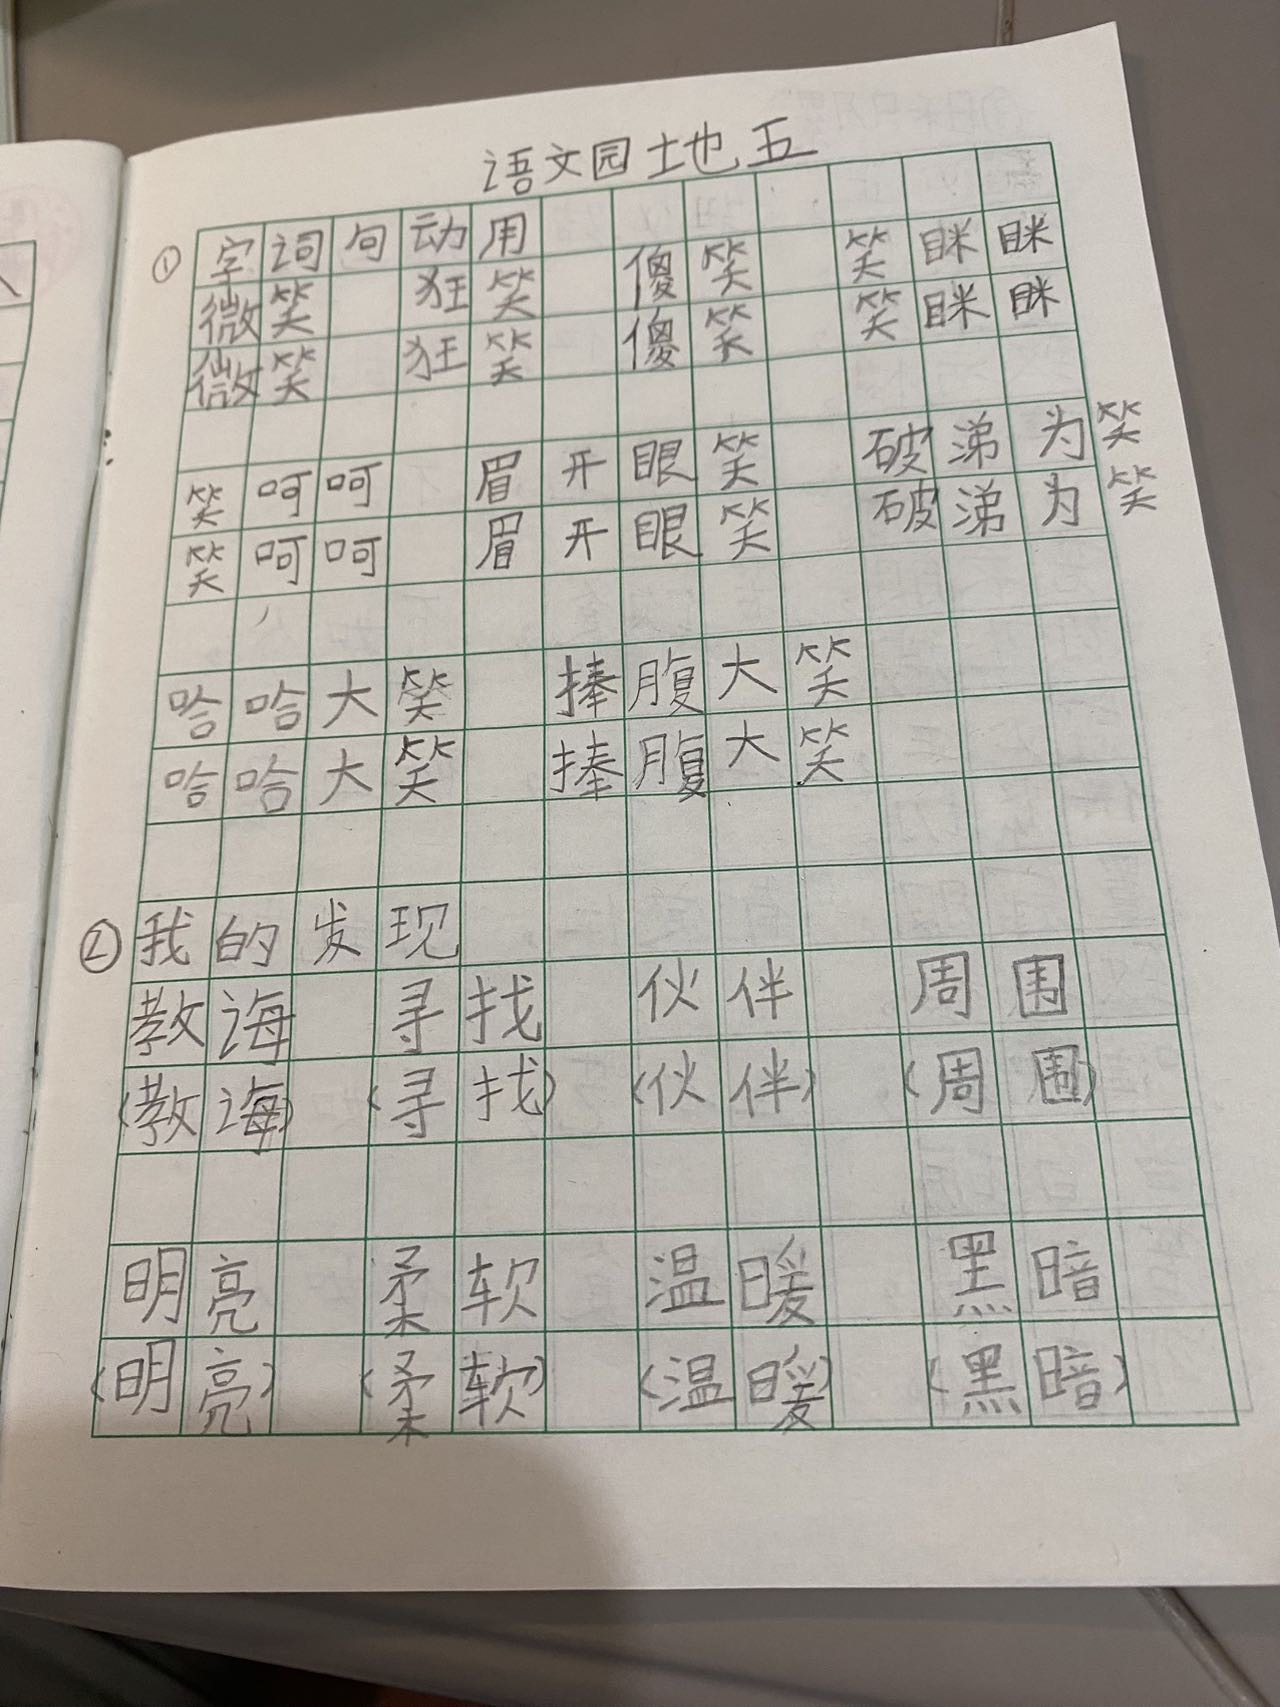 语文园地五
① 字词句动用
微笑 狂笑 傻笑 笑眯眯
微笑 狂笑 傻笑 笑眯眯
笑呵呵 眉开眼笑 破涕为笑
笑呵呵 眉开眼笑 破涕为笑
哈哈大笑 捧腹大笑
哈哈大笑 捧腹大笑
② 我的发现
教诲 寻找 伙伴 周围
(教诲) (寻找) (伙伴) (周围)
明亮 柔软 温暖 黑暗
(明亮) (柔软) (温暖) (黑暗)